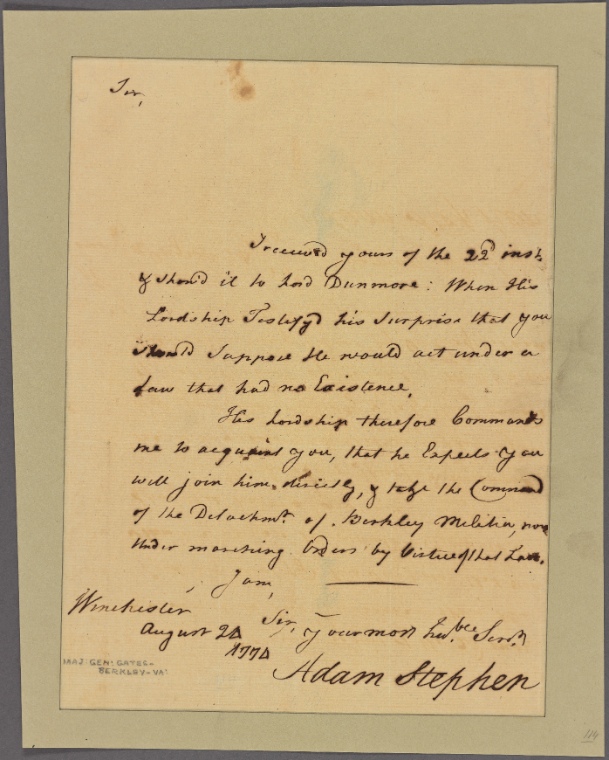 Sir,
I received yours of the 22d inst.
& shon'd it to Lord Dunmore: When His
Lordship Testifyd his Surprise that you
should Suppose He would act under a
Law that had no Existence.
His Lordship therefore Commands
me to acquaint you, that he Expects you
will join him directly, & take the Command
of the Detachmt. of Berkley Militia, now
under marching Orders by Virtue of that Law.
I am,
Winchester
Sir, your most hu.ble Servt.
August 24
1774
Adam Stephen
MAJ. GEN. GATES-
BERKLEY-VA.
114